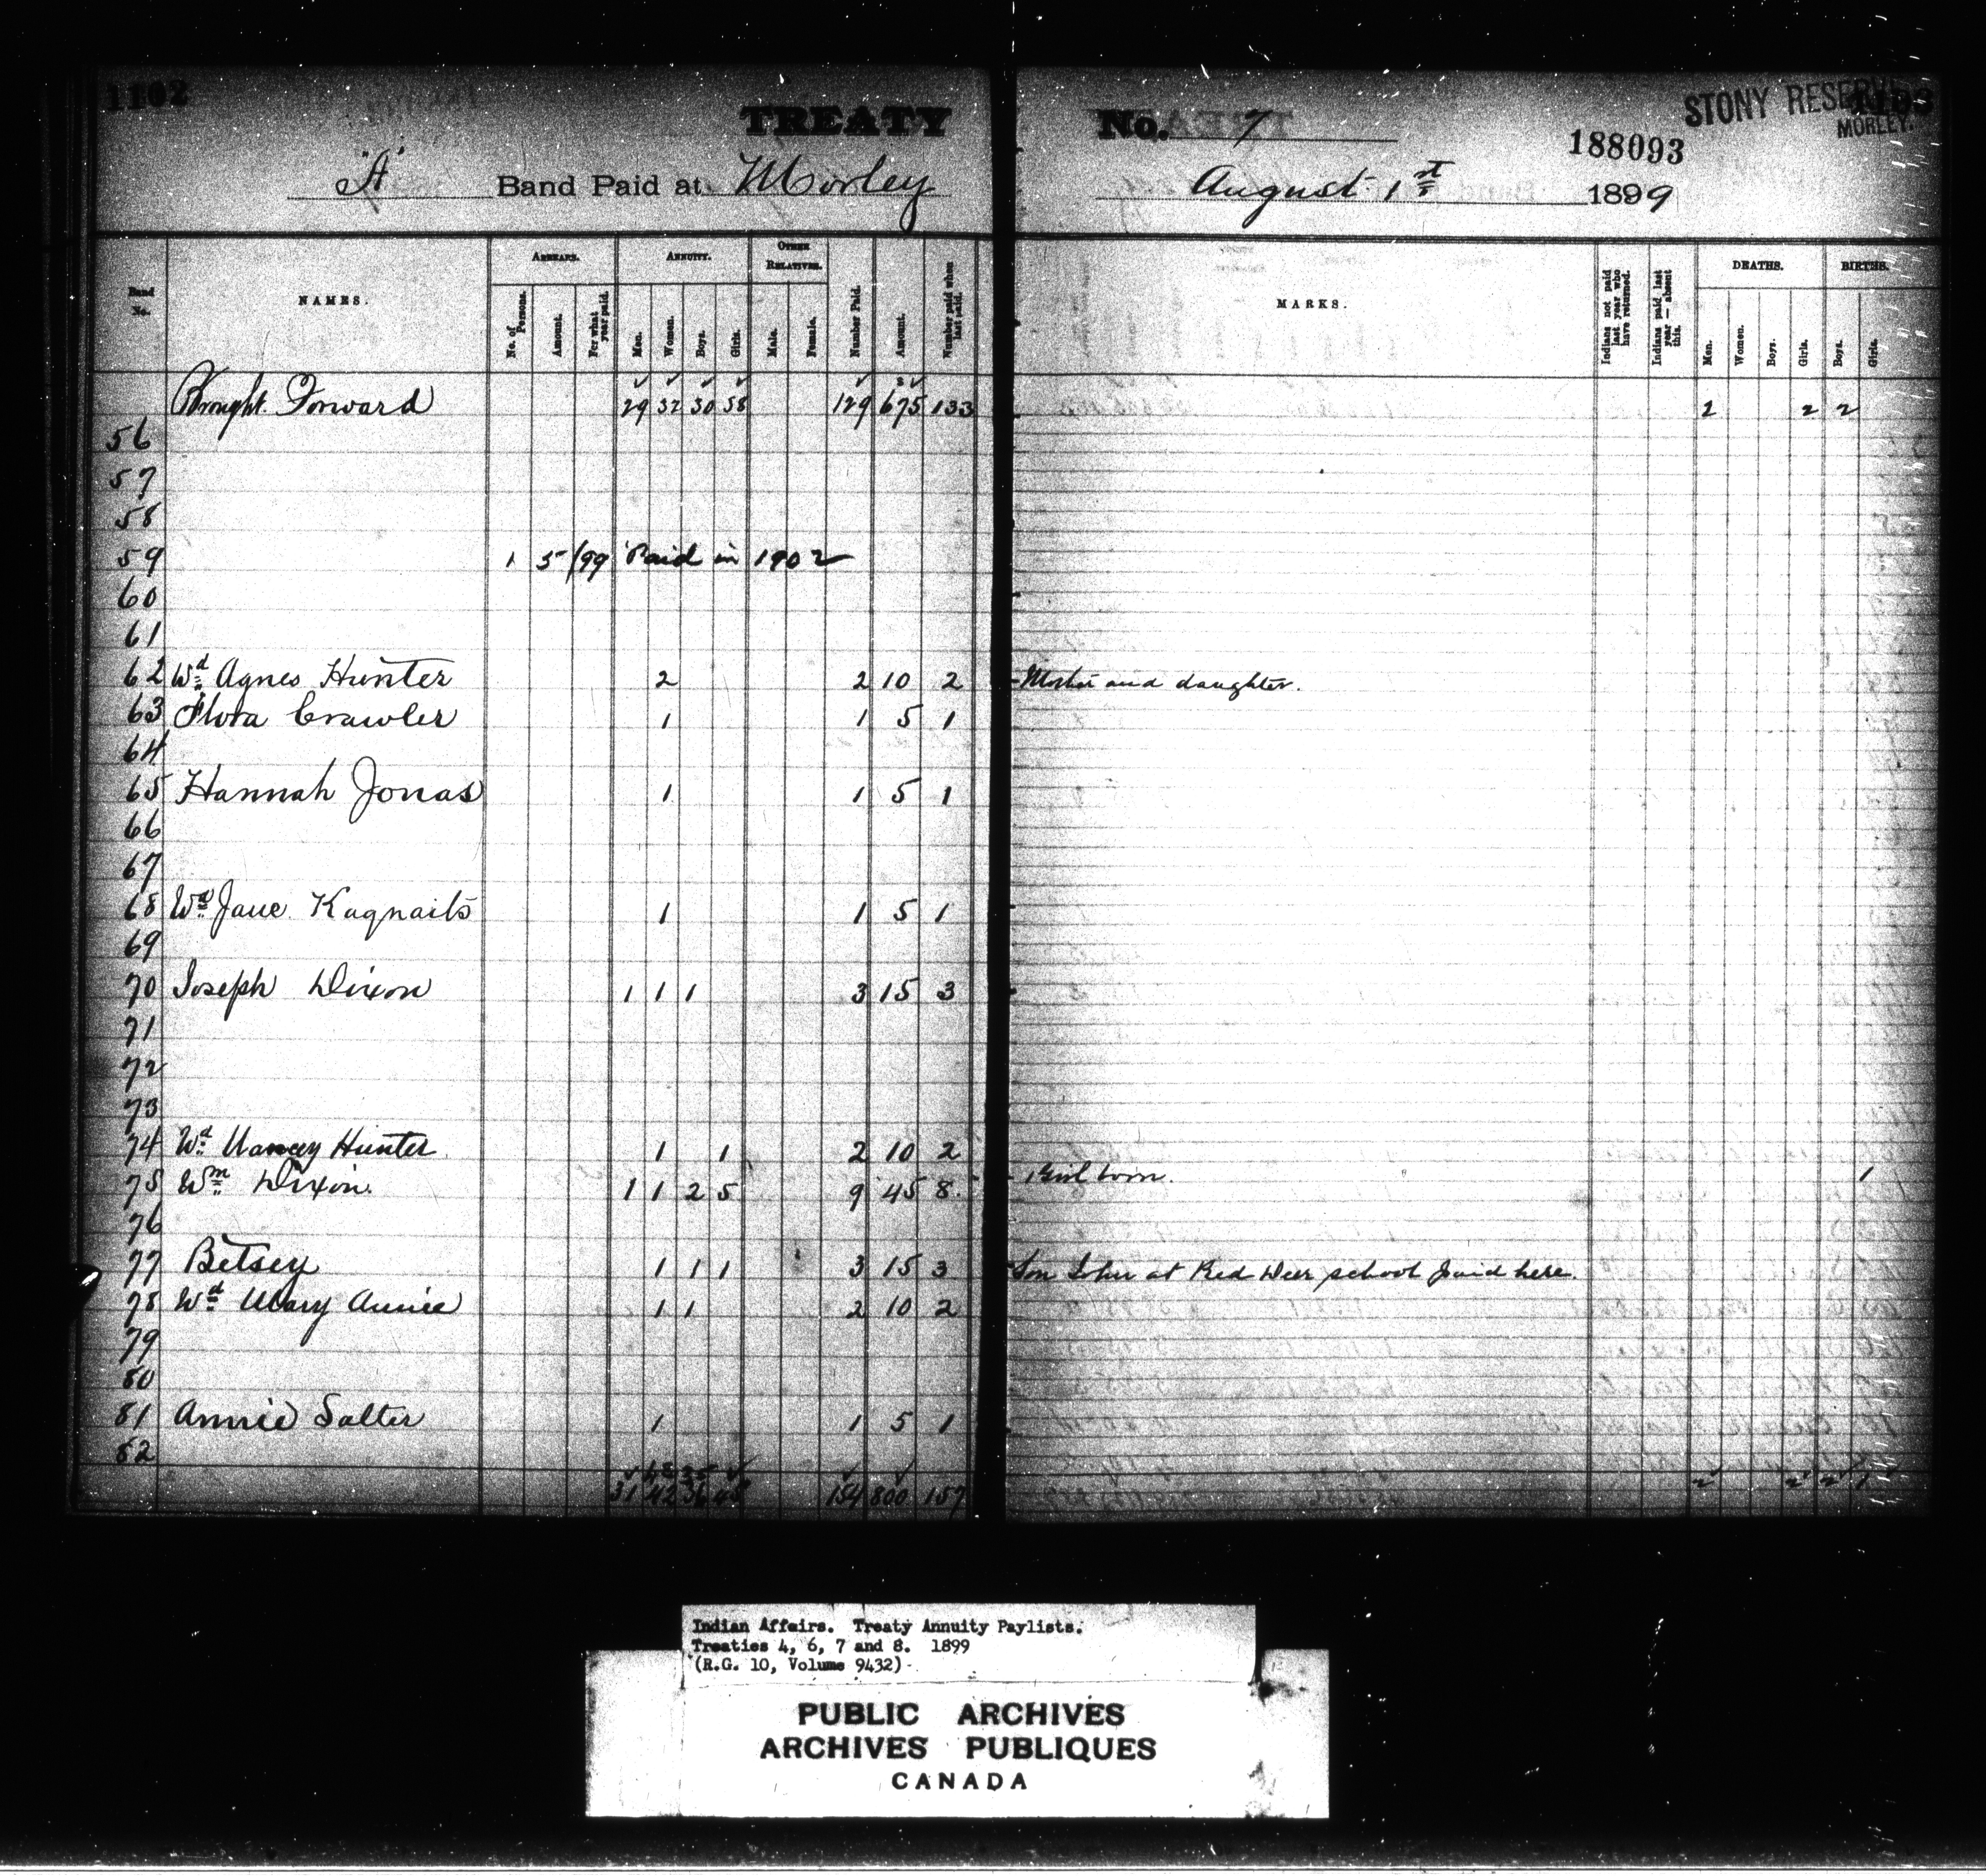 1102
TREATY No. 7
STONY RESERVE
MORLEY.
188093
"A" Band Paid at Morley August 1st 1899
Band No. NAMES. ARREARS. ANNUITY. OTHER RELATIVES. Number Paid. Amount. Number paid when last paid. MARKS. Indians not paid last year who have returned. Indians paid last year — absent this. DEATHS. BIRTHS.
No. of Persons. Amount. For what year paid. Men. Women. Boys. Girls. Male. Female. Men. Women. Boys. Girls. Boys. Girls.
Brought Forward 29 32 30 38 129 675 133 2 2 2
56
57
58
59 1 5 /99 Paid in 1902
60
61
62 Wd Agnes Hunter 2 2 10 2 Mother and daughter.
63 Flora Crawler 1 1 5 1
64
65 Hannah Jonas 1 1 5 1
66
67
68 Wd Jane Kagnaits 1 1 5 1
69
70 Joseph Dixon 1 1 1 3 15 3
71
72
73
74 Wd Nancy Hunter 1 1 2 10 2
75 Wm Dixon. 1 1 2 5 9 45 8 1 Girl born. 1
76
77 Betsey 1 1 1 3 15 3 Son John at Red Deer school paid here.
78 Wd Mary Annie 1 1 2 10 2
79
80
81 Annie Salter 1 1 5 1
82
31 42 36 45 154 800 157 2 2 2 1
Indian Affairs. Treaty Annuity Paylists.
Treaties 4, 6, 7 and 8. 1899
(R.G. 10, Volume 9432)
PUBLIC ARCHIVES
ARCHIVES PUBLIQUES
CANADA